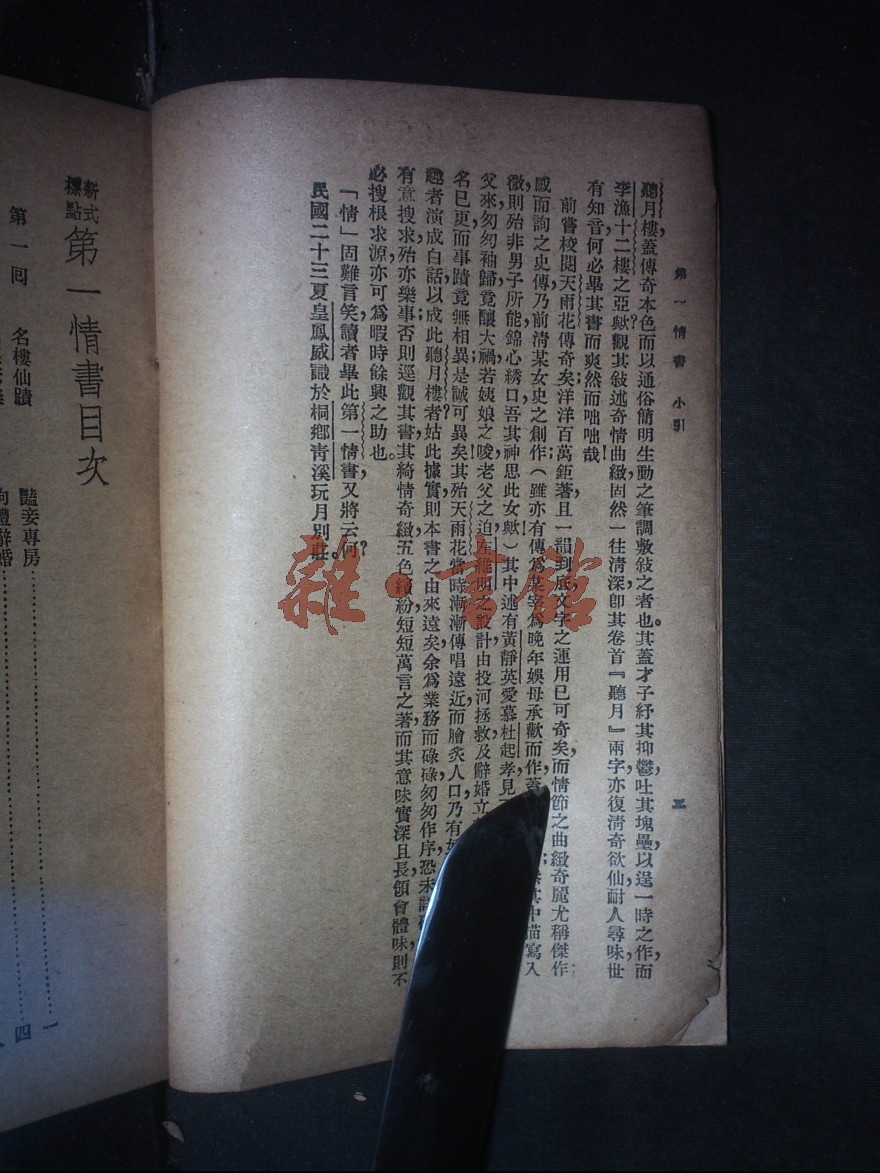 第一情書 小引
三
聽月樓，蓋傳奇本色，而以通俗簡明生動之筆調敷敍之者也。其蓋才子紓其抑鬱，吐其塊壘，以逞一時之作，而
李漁十二樓之亞歟？觀其敍述奇情曲緻，固然一往清深，卽其卷首『聽月』兩字，亦復清奇欲仙，耐人尋味，世
有知音，何必畢其書而爽然而咄咄哉！
前嘗校閱天雨花傳奇矣，洋洋百萬鉅著，且一韻到底，文字之運用已可奇矣，而情節之曲緻奇麗，尤稱傑作，
感而詢之史傳，乃前清某女史之創作；（雖亦有傳爲某宰爲晚年娛母承歡而作，蓋
其中描寫入
微，則殆非男子所能，錦心綉口，吾其神思此女歟！）其中述有黃靜英愛慕杜起孝，見
父來，匆匆袖歸，竟釀大禍，若姨娘之唆，老父之迫，左維明之設計，由投河拯救及辭婚立
名已更，而事蹟竟無相異，是誠可異矣；其殆天雨花當時漸漸傳唱遠近，而膾炙人口，乃有好
趣者，演成白話，以成此聽月樓者？姑此據實，則本書之由來遠矣；余爲業務而碌碌，匆匆作序，恐未
有意搜求，殆亦樂事，否則逕觀其書，其綺情奇緻，五色繽紛，短短萬言之著，而其意味實深且長，領會體味，則不
必搜根求源，亦可爲暇時餘興之助也。
「情」固難言，笑讀者畢此第一情書，又將云何？
民國二十三夏皇鳳威識於桐鄉靑溪玩月別莊。
新式標點 第一情書目次
第一回 名樓仙蹟 豔妾專房……一
四
雜·書館